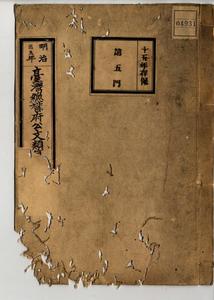 明治
臺灣總督府公文類
十五年保存
第五門
04931